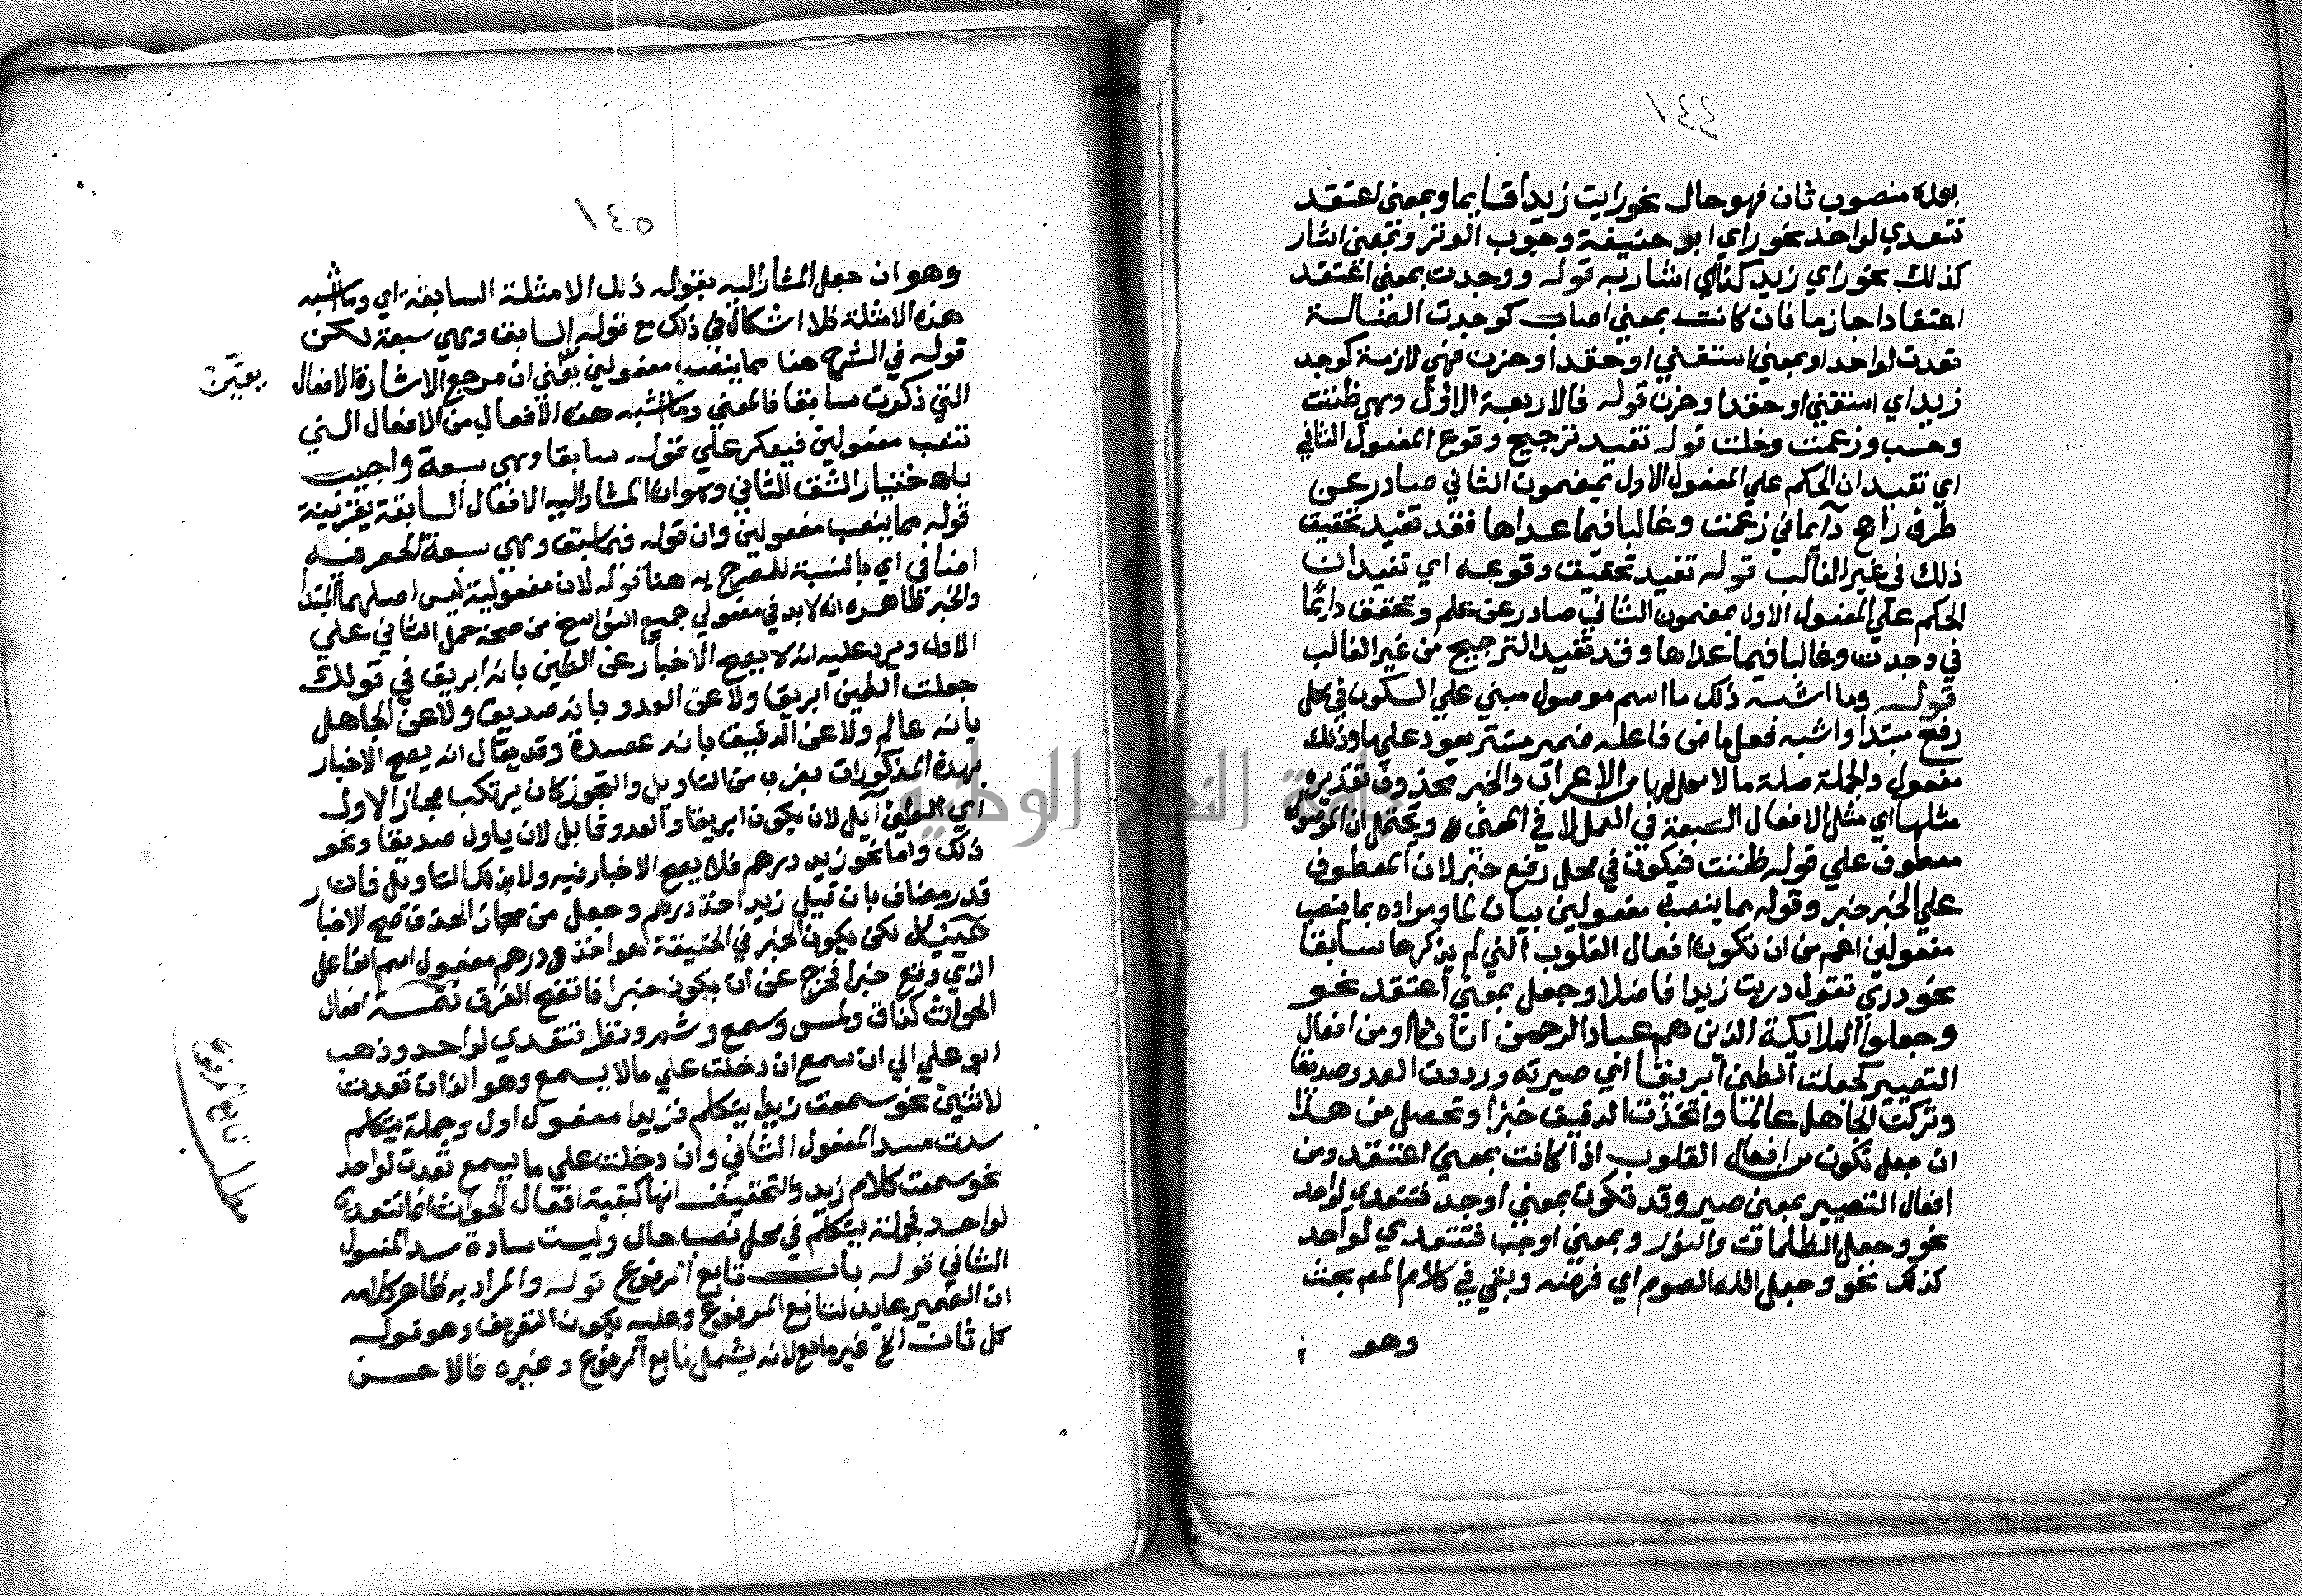 ١٤٤
بعده منصوب ثان فهو حال نحو رايت زيدا قايما وبمعني اعتقد
تتعدي لواحد نحو راي ابو حنيفة وجوب الوتر وبمعني اشار
كذلك نحو راي زيد كذا اي اشار به قوله ووجدت بمعني اعتقد
اعتقادا جازما فان كانت بمعني اصاب كوجدت الضالة
تعدت لواحد او بمعني استغني او حقد او حزن فهي لازمة كوجد
زيد اي استغني او حقد او حزن قوله فالاربعة الاول وهي ظننت
وحسب وزعمت وخلت قوله تفيد ترجيح وقوع المفعول الثاني
اي تفيد ان الحكم علي المفعول الاول بمضمون الثاني صادر عن
طرف راجح دايما في زعمت وغالبا فيما عداها فقد تفيد تحقيق
ذلك في غير الغالب قوله تفيد تحقيق وقوعه اي تفيد ان
الحكم علي المفعول الاول بمضمون الثاني صادر عن علم وتحقق دايما
في وجدت وغالبا فيما عداها وقد تفيد الترجيح من غير الغالب
قوله وما اشبه ذلك ما اسم موصول مبني علي السكون في محل
رفع مبتدا واشبه فعل ماض فاعله ضمير مستتر يعود علي ما وذلك
مفعول والجملة صلة ما لا محل لها من الاعراب والخبر محذوف تقديره
مثلها اي مثل الافعال السبعة في العمل لا في المعني ويحتمل ان الموصول
معطوف علي قوله ظننت فيكون في محل رفع خبر لان المعطوف
علي الخبر خبر وقوله مما ينصب مفعولين بيان لما ومراده بما ينصب
مفعولين اعم من ان تكون افعال القلوب التي لم يذكرها سابقا
نحو دري تقول دريت زيدا فاضلا وجعل بمعني اعتقد نحو
وجعلوا الملايكة الذين هم عباد الرحمن اناثا او من افعال
التصيير كجعلت الطين ابريقا اي صيرته ورددت العدو صديقا
وتركت الجاهل عالما واتخذت الدقيق خبزا وتحصل من هذا
ان جعل تكون من افعال القلوب اذا كانت بمعني اعتقد ومن
افعال التصيير بمعني صير وقد تكون بمعني اوجد فتتعدي لواحد
نحو وجعل الظلمات والنور وبمعني اوجب فتتعدي لواحد
كذلك نحو وجعل الله الصوم اي فرضه وبقي في كلام المص بحث
وهو
١٤٥
وهو ان جعل المشار اليه بقوله ذلك الامثلة السابقة اي وما اشبه
هذه الامثلة فلا اشكال في ذلك مع قوله السابق وهي سبعة لكن
قوله في الشرح هنا مما ينصب مفعولين يعين ان مرجع الاشارة الافعال
يعين
التي ذكرت سابقا فالمعني وما اشبه هذه الافعال من الافعال التي
تنصب مفعولين فيعكر علي قوله سابقا وهي سبعة واجيب
باختيار الشق الثاني وهو ان المشار اليه الافعال السابقة بقرينة
قوله مما ينصب مفعولين وان قوله فيما سبق وهي سبعة الحصر فيه
اضافي اي بالنسبة للمصرح به هنا قوله لان مفعوليه ليس اصلهما المبتدا
والخبر ظاهره انه لابد في مفعولي جميع النواسخ من صحة حمل الثاني علي
الاول ويرد عليه انه لا يصح الاخبار عن الطين بانه ابريق في قولك
جعلت الطين ابريقا ولا عن العدو بانه صديق ولا عن الجاهل
بانه عالم ولا عن الدقيق بانه عصيدة وقد يقال انه يصح الاخبار
بهذه المذكورات بضرب من التاويل والتجوز كان يرتكب مجاز الاول
اي الطين آيل لان يكون ابريقا والعدو قابل لان ياول صديقا ونحو
ذلك واما نحو زيد درهم فلا يصح الاخبار فيه ولا بذلك التاويل فان
قدر مضاف بان قيل زيد اخذ درهم وجعل من مجاز الحذف صح الاخبار
حينئذ لكن يكون الخبر في الحقيقة هو اخذ ودرهم مفعول اسم الفاعل
الذي وقع خبرا فخرج عن ان يكون خبرا فاتضح الفرق تتمة افعال
الحواس كذاق ولمس وسمع وشم ونظر تتعدي لواحد وذهب
ابو علي الي ان سمع ان دخلت علي مالا يسمع وهو الذات تعدت
لاثنين نحو سمعت زيدا يتكلم فزيدا مفعول اول وجملة يتكلم
سدت مسد المفعول الثاني وان دخلت علي ما يسمع تعدت لواحد
نحو سمعت كلام زيد والتحقيق انها كبقية افعال الحواس انما تتعدي
لواحد فجملة يتكلم في محل نصب حال وليست سادة مسد المفعول
الثاني قوله باب تابع المرفوع قوله والمراد به ظاهر كلامه
مطلب تابع المرفوع
ان الضمير عايد لتابع المرفوع وعليه يكون التعريف وهو قوله
كل ثان الخ غير مانع لانه يشمل تابع المرفوع وغيره فالاحسن